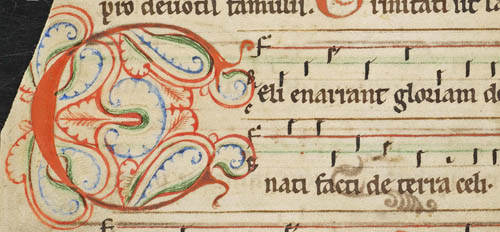 pro devotis famulis. Trinitati ut la
Celi enarrant gloriam de
nati facti de terra celi.